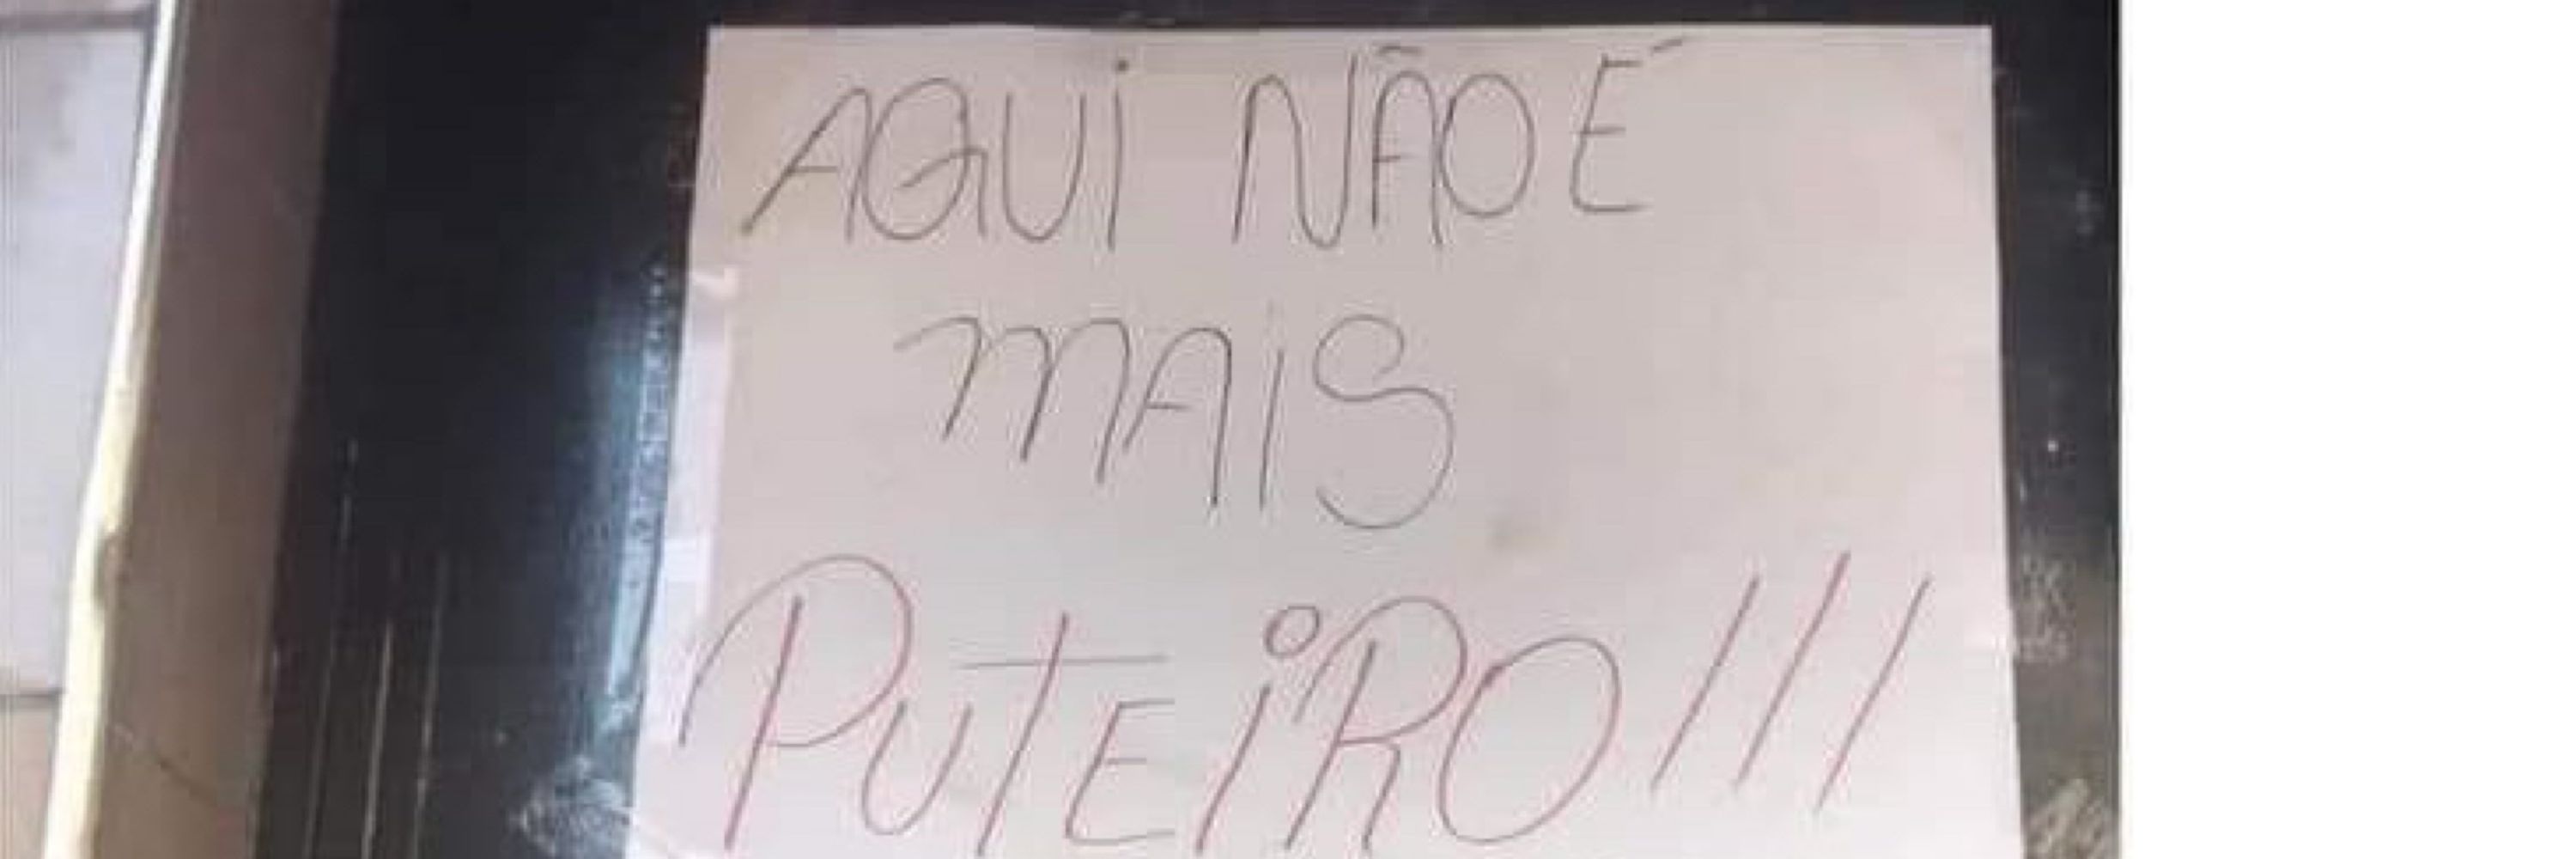 AQUi NÃO É
MAiS
PUTEiRO!!!